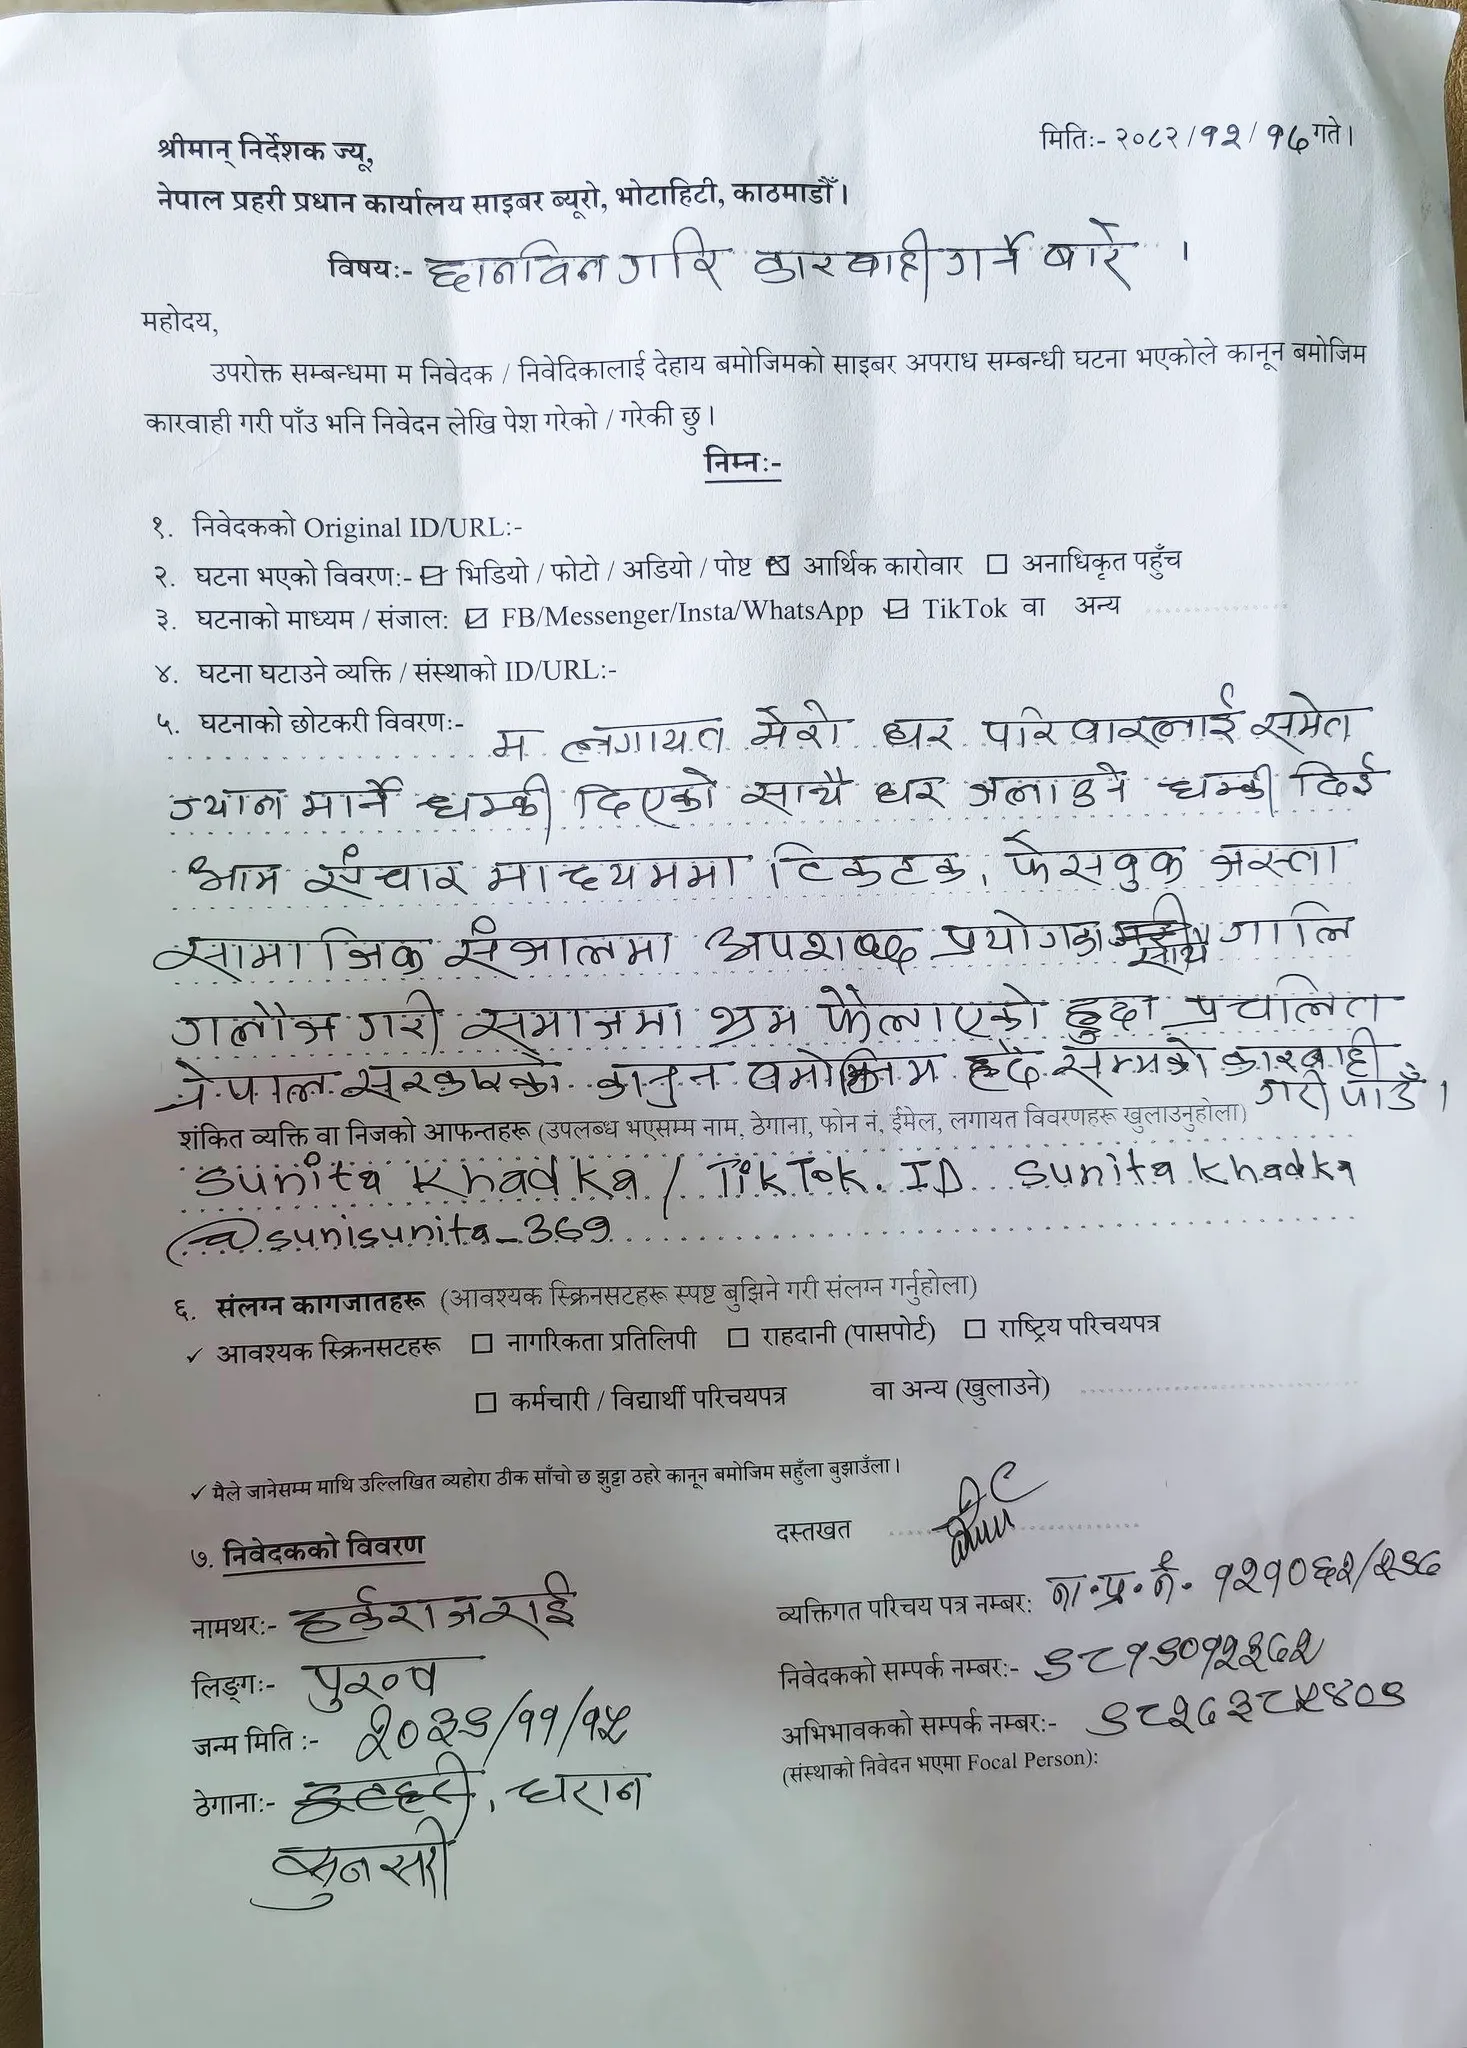 मितिः- २०८२/१२/१७ गते।
श्रीमान् निर्देशक ज्यू,
नेपाल प्रहरी प्रधान कार्यालय साइबर ब्यूरो, भोटाहिटी, काठमाडौँ।
विषयः- छानविन गरि कारवाही गर्ने बारे ।
महोदय,
उपरोक्त सम्बन्धमा म निवेदक / निवेदिकालाई देहाय बमोजिमको साइबर अपराध सम्बन्धी घटना भएकोले कानून बमोजिम
कारवाही गरी पाँउ भनि निवेदन लेखि पेश गरेको / गरेकी छु।
निम्नः-
१. निवेदकको Original ID/URL:-
२. घटना भएको विवरणः- ☑ भिडियो / फोटो / अडियो / पोष्ट ☒ आर्थिक कारोवार ☐ अनाधिकृत पहुँच
३. घटनाको माध्यम / संजालः ☑ FB/Messenger/Insta/WhatsApp ☑ TikTok वा अन्य
४. घटना घटाउने व्यक्ति / संस्थाको ID/URL:-
५. घटनाको छोटकरी विवरणः- म लगायत मेरो घर परिवारलाई समेत
ज्यान मार्ने धम्की दिएको साथै घर जलाउने धम्की दिई
आम संचार माध्यममा टिकटक, फेसवुक जस्ता
सामाजिक संजालमा अपशब्द प्रयोगका साथै गालि
गलौज गरी समाजमा भ्रम फैलाएको हुदा प्रचलित
नेपाल सरकारको कानुन बमोजिम हदै सम्मको कारवाही
गरी पाउँ ।
शंकित व्यक्ति वा निजको आफन्तहरू (उपलब्ध भएसम्म नाम, ठेगाना, फोन नं, ईमेल, लगायत विवरणहरू खुलाउनुहोला)
Sunita Khadka / TikTok. ID Sunita Khadka
@sunisunita_369
६. संलग्न कागजातहरू (आवश्यक स्क्रिनसटहरू स्पष्ट बुझिने गरी संलग्न गर्नुहोला)
✓ आवश्यक स्क्रिनसटहरू ☐ नागरिकता प्रतिलिपी ☐ राहदानी (पासपोर्ट) ☐ राष्ट्रिय परिचयपत्र
☐ कर्मचारी / विद्यार्थी परिचयपत्र वा अन्य (खुलाउने)
✓ मैले जानेसम्म माथि उल्लिखित व्यहोरा ठीक साँचो छ झुट्ठा ठहरे कानून बमोजिम सहुँला बुझाउँला।
दस्तखत
७. निवेदकको विवरण
नामथरः- हर्कराज राई
लिङ्गः- पुरुष
जन्म मिति :- २०३९/११/१५
ठेगानाः- इटहरी, धरान
सुनसरी
व्यक्तिगत परिचय पत्र नम्बर: ना.प्र.नं. १२१०६२/२९८
निवेदकको सम्पर्क नम्बर:- ९८१९०१२३८२
अभिभावकको सम्पर्क नम्बर:- ९८२८३८५४०९
(संस्थाको निवेदन भएमा Focal Person):